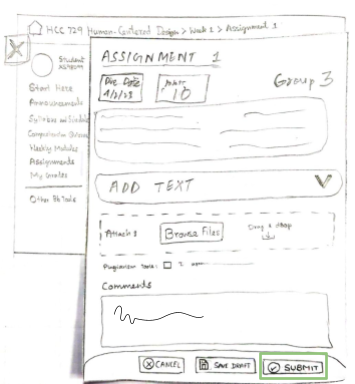 HCC 729 Human-Centered Design > Week 1 > Assignment 1
X
Student
Start Here
Announcements
Syllabus and Schedule
Comprehension Quizzes
Weekly Modules
Assignments
My Grades
Other Bb Tools
ASSIGNMENT 1
Due Date
4/2/23
Points
10
Group 3
ADD TEXT
Attach:
Browse Files
Drag & drop
Plagiarism Tools:
Comments
CANCEL
SAVE DRAFT
SUBMIT